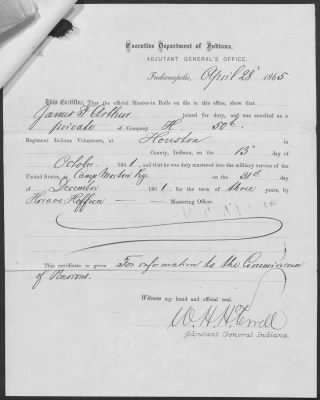 Executive Department of Indiana,
ADJUTANT GENERAL'S OFFICE,
Indianapolis, April 28" 1865
This Certifies, That the official Muster-in Rolls on file in this office, show that
James F Arthur joined for duty, and was enrolled as
private of Company H 50th
Regiment Indiana Volunteers, at Houston in
County, Indiana, on the 13" day of
October 1861, and that he was duly mustered into the military service of the
United States, at Camp Morton Ky. on the 31st day
of December 1861, for the term of three years, by
Horace Heffren Mustering Officer.
This certificate is given For information to the Commissioner
of Pensions.
Witness my hand and official seal.
W. H. H. Terrell
Adjutant General Indiana.